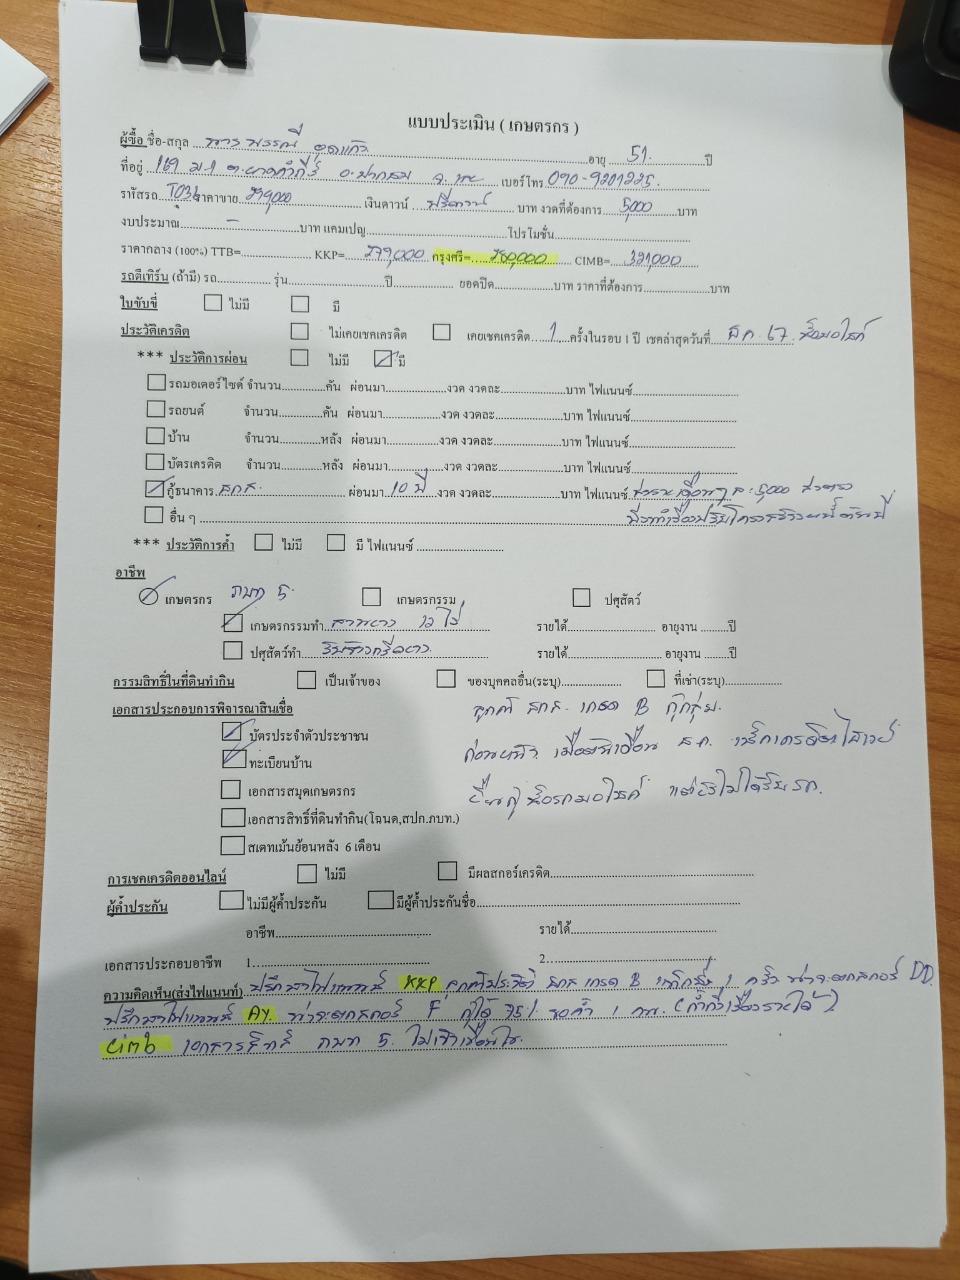 แบบประเมิน ( เกษตรกร )
ผู้ซื้อ ชื่อ-สกุล ............ อายุ 51 ปี
ที่อยู่ 169 ม.1 ต. อ.ปากชม จ.เลย เบอร์โทร 090-9201225
รหัสรถ T036 ราคาขาย 279,000 เงินดาวน์ ฟรีดาวน์ บาท งวดที่ต้องการ 5,000 บาท
งบประมาณ - บาท แคมเปญ............ โปรโมชั่น............
ราคากลาง (100%) TTB=............ KKP= 279,000 กรุงศรี= 280,000 CIMB= 321,000
รถตีเทิร์น (ถ้ามี) รถ............ รุ่น............ปี............ ยอดปิด............บาท ราคาที่ต้องการ............บาท
ใบขับขี่ ไม่มี มี
ประวัติเครดิต ไม่เคยเชคเครดิต เคยเชคเครดิต 1 ครั้งในรอบ 1 ปี เชคล่าสุดวันที่ ธ.ค. 67
*** ประวัติการผ่อน ไม่มี มี
รถมอเตอร์ไซด์ จำนวน............คัน ผ่อนมา............งวด งวดละ............บาท ไฟแนนซ์............
รถยนต์ จำนวน............คัน ผ่อนมา............งวด งวดละ............บาท ไฟแนนซ์............
บ้าน จำนวน............หลัง ผ่อนมา............งวด งวดละ............บาท ไฟแนนซ์............
บัตรเครดิต จำนวน............หลัง ผ่อนมา............งวด งวดละ............บาท ไฟแนนซ์............
กู้ธนาคาร ธกส. ผ่อนมา 10 ปี งวด งวดละ............บาท ไฟแนนซ์ 5,000
อื่น ๆ ............
*** ประวัติการค้ำ ไม่มี มี ไฟแนนซ์............
อาชีพ
เกษตรกร ภบท 5. เกษตรกรรม ปศุสัตว์
เกษตรกรรมทำ 12 ไร่ รายได้............ อายุงาน ........ปี
ปศุสัตว์ทำ ............ รายได้............ อายุงาน ........ปี
กรรมสิทธิ์ในที่ดินทำกิน เป็นเจ้าของ ของบุคคลอื่น(ระบุ)............ ที่เช่า(ระบุ)............
เอกสารประกอบการพิจารณาสินเชื่อ ลูกค้า ธกส. เกรด B
บัตรประจำตัวประชาชน
ทะเบียนบ้าน
เอกสารสมุดเกษตรกร
เอกสารสิทธิ์ที่ดินทำกิน(โฉนด,สปก.ภบท.)
สเตทเม้นย้อนหลัง 6 เดือน
การเชคเครดิตออนไลน์ ไม่มี มีผลสกอร์เครดิต............
ผู้ค้ำประกัน ไม่มีผู้ค้ำประกัน มีผู้ค้ำประกันชื่อ............
อาชีพ............ รายได้............
เอกสารประกอบอาชีพ 1............ 2............
ความคิดเห็น(ส่งไฟแนนท์) ปรึกษาไฟแนนซ์ KKP ลูกค้าประวัติ ธกส เกรด B 1 ครั้ง น่าจะตกสกอร์ DD.
ปรึกษาไฟแนนซ์ AY. น่าจะตกสกอร์ F กู้ได้ 75% ขอค้ำ 1 คน
cimb เอกสารสิทธิ์ ภบท 5. ไม่เข้าเงื่อนไข.